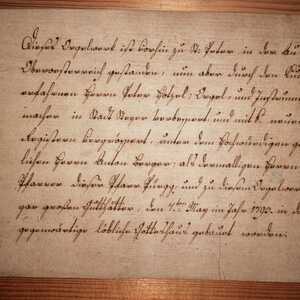 Dieses Orgelwerk ist vorhin zu St. Peter in der Au
Oberoesterreich gestanden, nun aber durch den
erfahrenen Herrn Peter Hötzel, Orgel, und Instrum
macher in Stadt Steyer verbessert, und mit 6 neuen
Registern vergrössert, unter dem Hochwürdigen
lichen Herrn Anton Berger, als dermalligen Herrn
Pfarrer dieser Pfarr Pürgg, und zu diesem Orgelwerk
gar grossen Gutthäter, den 4ten May im Jahr 1790. in
gegenwärtige löbliche Gotteshaus gebauet worden.